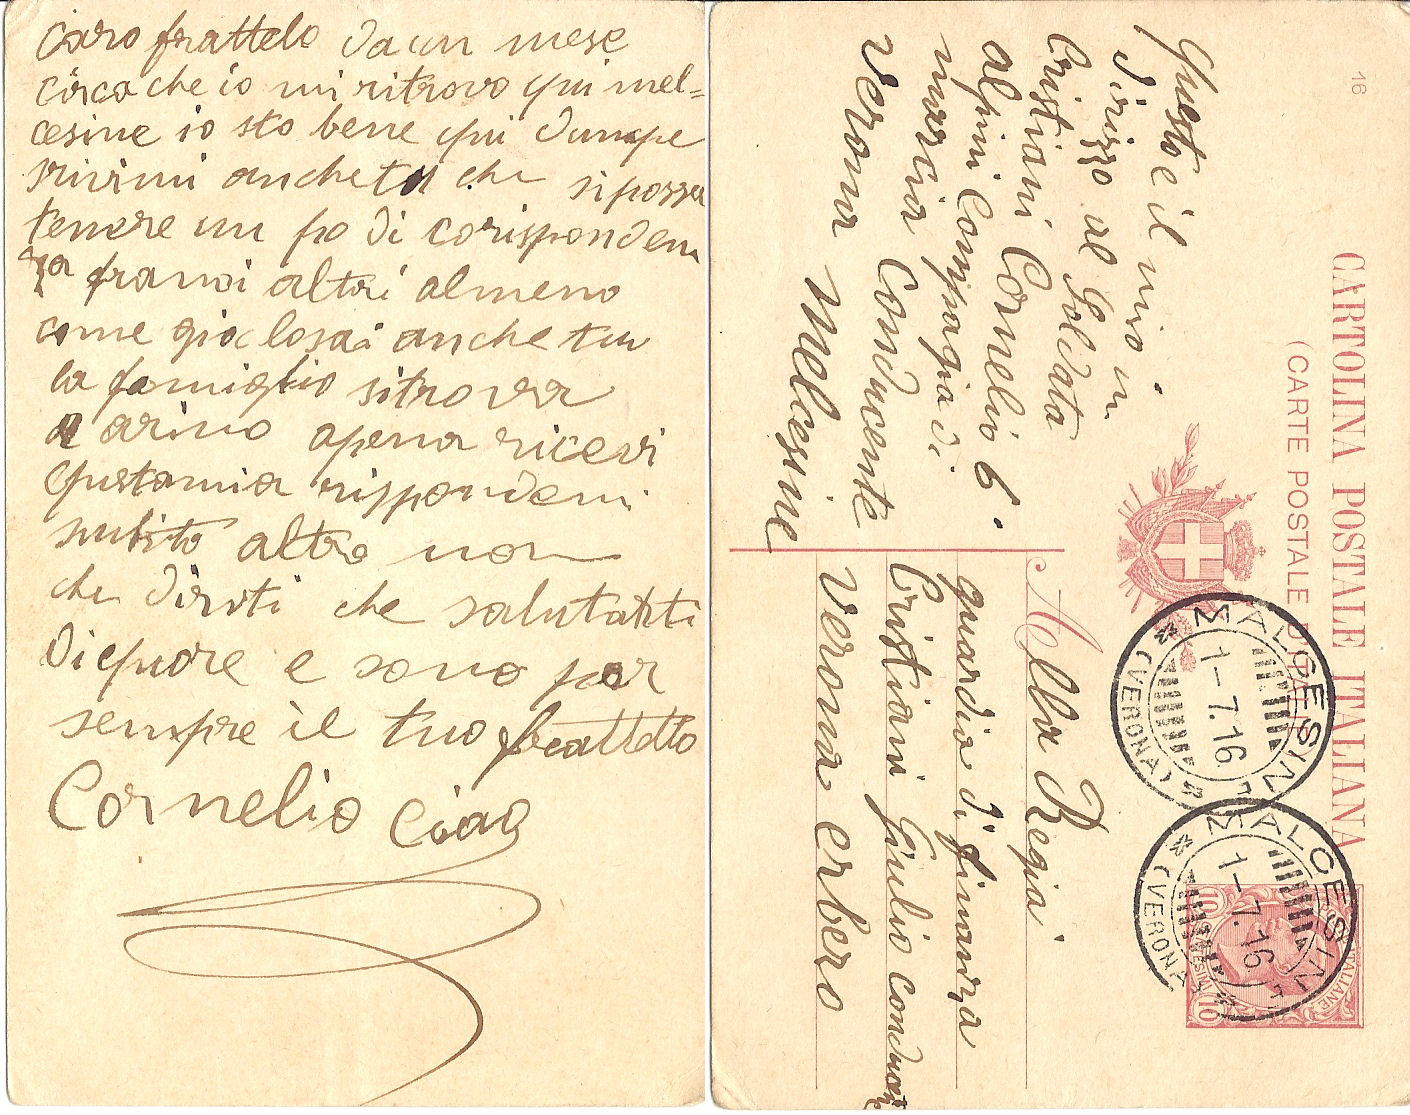 Caro frattelo da un mese
circa che io mi ritrovo qui mel=
cesine io sto bene qui dunque
srivimi anche tu che si possa
tenere un po di corisponden
za fra noi altri almeno
come gia lo sai anche tu
la famiglia si trova
a arino apena ricevi
questa mia rispondemi
subito altro non
che dirti che salutarti
di quore e sono per
sempre il tuo frattello
Cornelio Ciao
Questo è il mio in
dirizzo al Soldata
Cristiani Cornelio 6.
alpini Compagia di
marcia Conducente
Verona Melcesine
16
CARTOLINA POSTALE ITALIANA
(CARTE POSTALE D'ITALIE)
MALCESINE
1-7.16
(VERONA)
MALCESINE
1-7.16
(VERONA)
POSTE ITALIANE
10 10
Alla Regia
guardia di finanza
Cristiani Giulio
Verona erbero